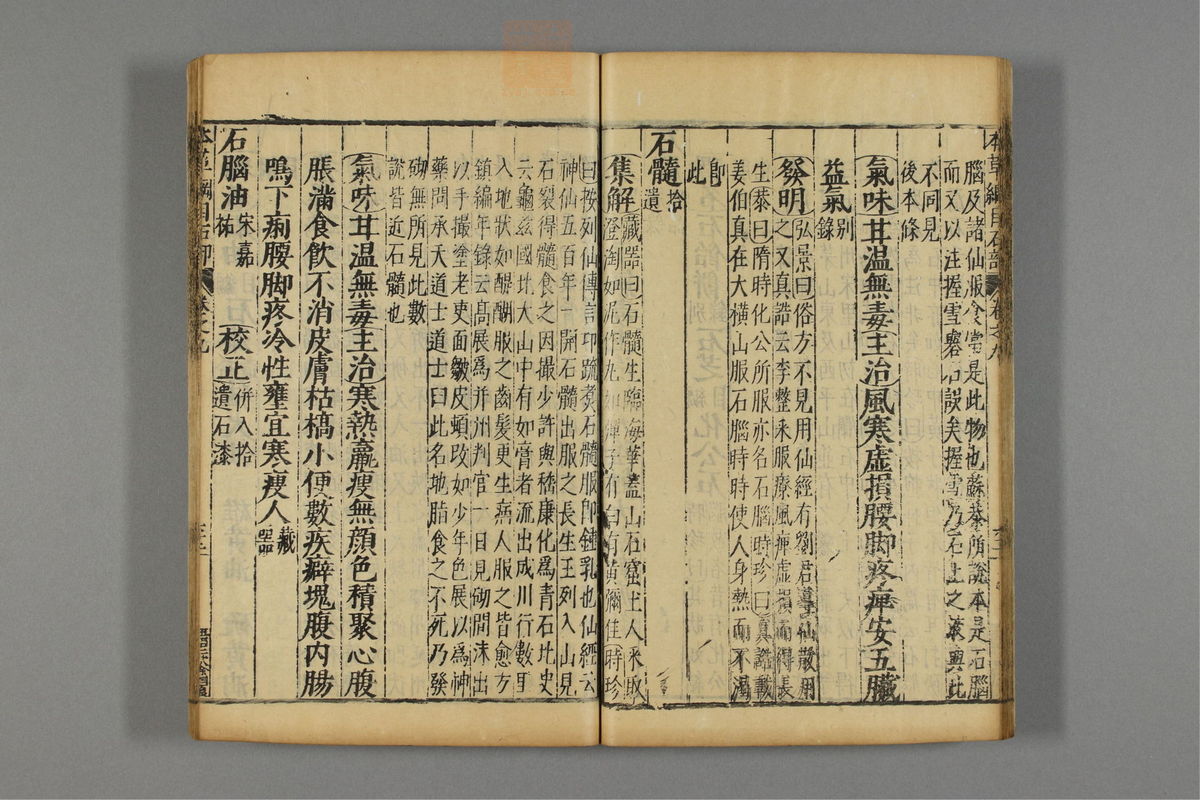 本草綱目石部 卷之九
腦及諸仙服食當是此物也蘇恭所說本是石腦
而又以注握雪礜石誤矣握雪乃石上之液與此
不同見
後本條
氣味甘溫無毒主治風寒虛損腰脚疼痺安五臟
益氣别錄
發明弘景曰俗方不見用仙經有劉君導仙散用
之又真誥云李整采服療風痺虛損而得長
生恭曰隋時化公所服亦名石腦時珍曰真誥載
姜伯真在大橫山服石腦時時使人身熱而不渴
即
此
石髓拾遺
集解藏器曰石髓生臨海華蓋山石窟土人采取
澄淘如泥作丸如彈子有白有黃彌佳時珍
曰按列仙傳言卭疏煮石髓服即鍾乳也仙經云
神仙五百年一開石髓出服之長生王列入山見
石裂得髓食之因撮少許與嵇康化為青石北史
云龜玆國北大山中有如膏者流出成川行數里
入地狀如醍醐服之齒髮更生病人服之皆愈方
鎮編年錄云高展為并州判官一日見砌間沫出
以手撮塗老吏面皺皮頓改如少年色展以為神
藥問承天道士道士曰此名地脂食之不死乃發
砌無所見此數
說皆近石髓也
氣味甘溫無毒主治寒熱羸瘦無顏色積聚心腹
脹滿食飲不消皮膚枯槁小便數疾癖塊腹内腸
鳴下痢腰脚疼冷性壅宜寒瘦人藏器
石腦油宋嘉祐 校正併入拾遺石漆
本草綱目石部 卷之九